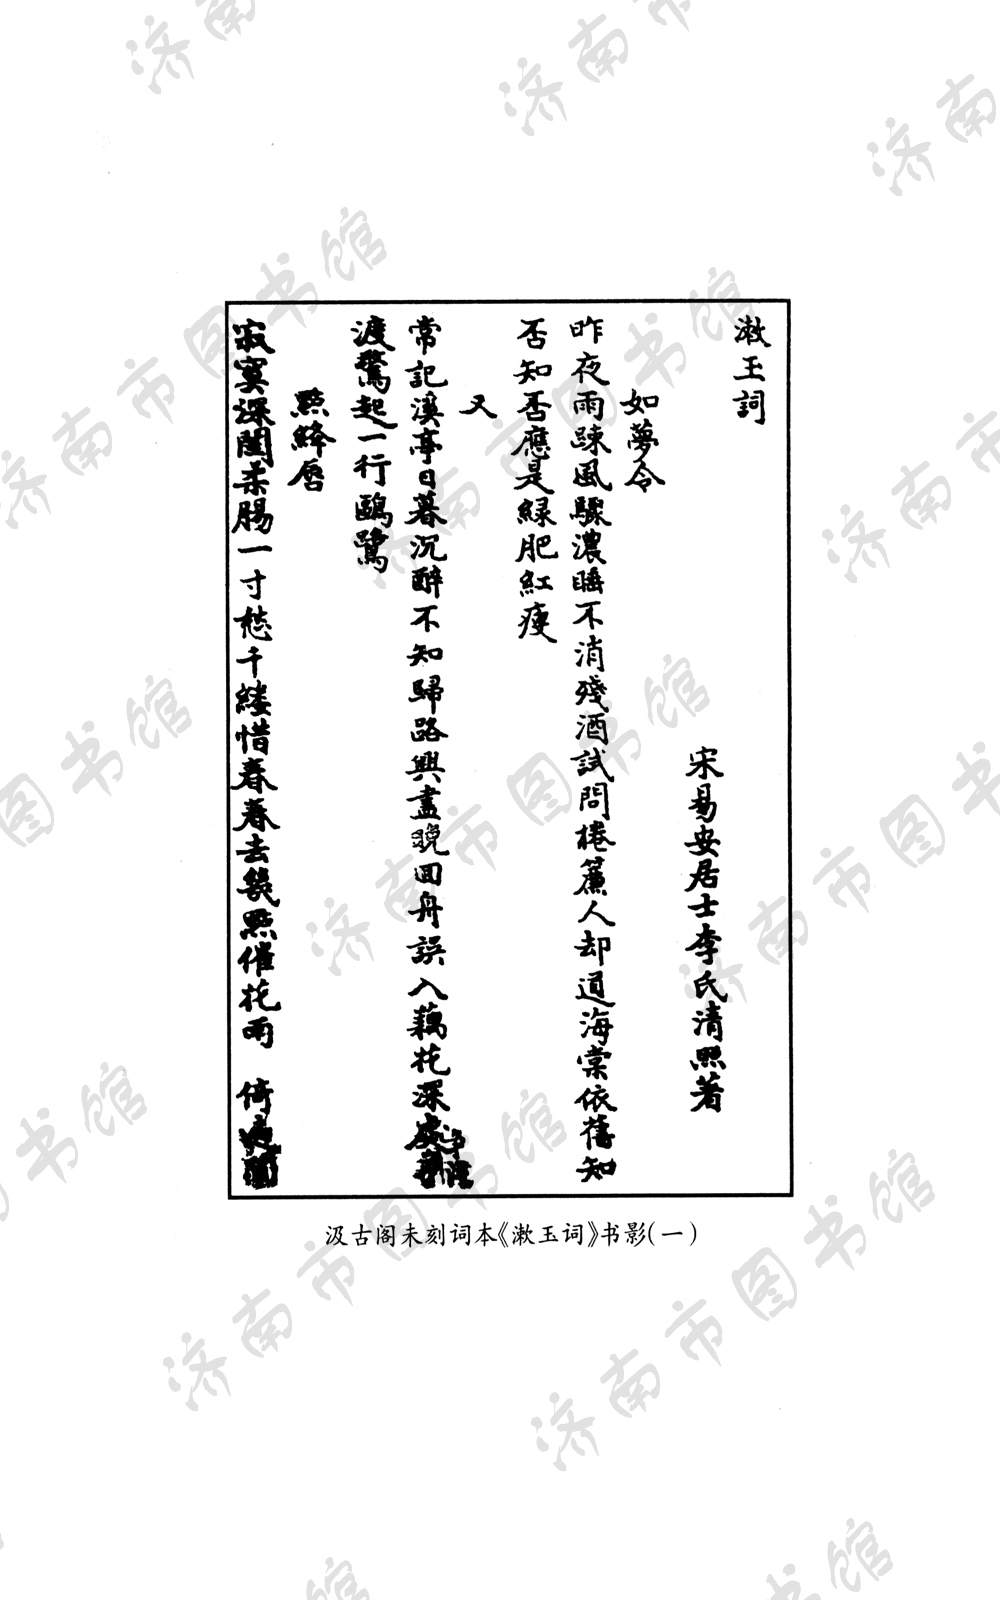 漱玉詞
宋易安居士李氏清照著
如夢令
昨夜雨踈風驟濃睡不消殘酒試問捲簾人却道海棠依舊知
否知否應是綠肥紅瘦
又
常記溪亭日暮沉醉不知歸路興盡晚回舟誤入藕花深處爭
渡驚起一行鷗鷺
點絳唇
寂寞深閨柔腸一寸愁千縷惜春春去幾點催花雨 倚
汲古阁未刻词本《漱玉词》书影(一)
济南市图书馆